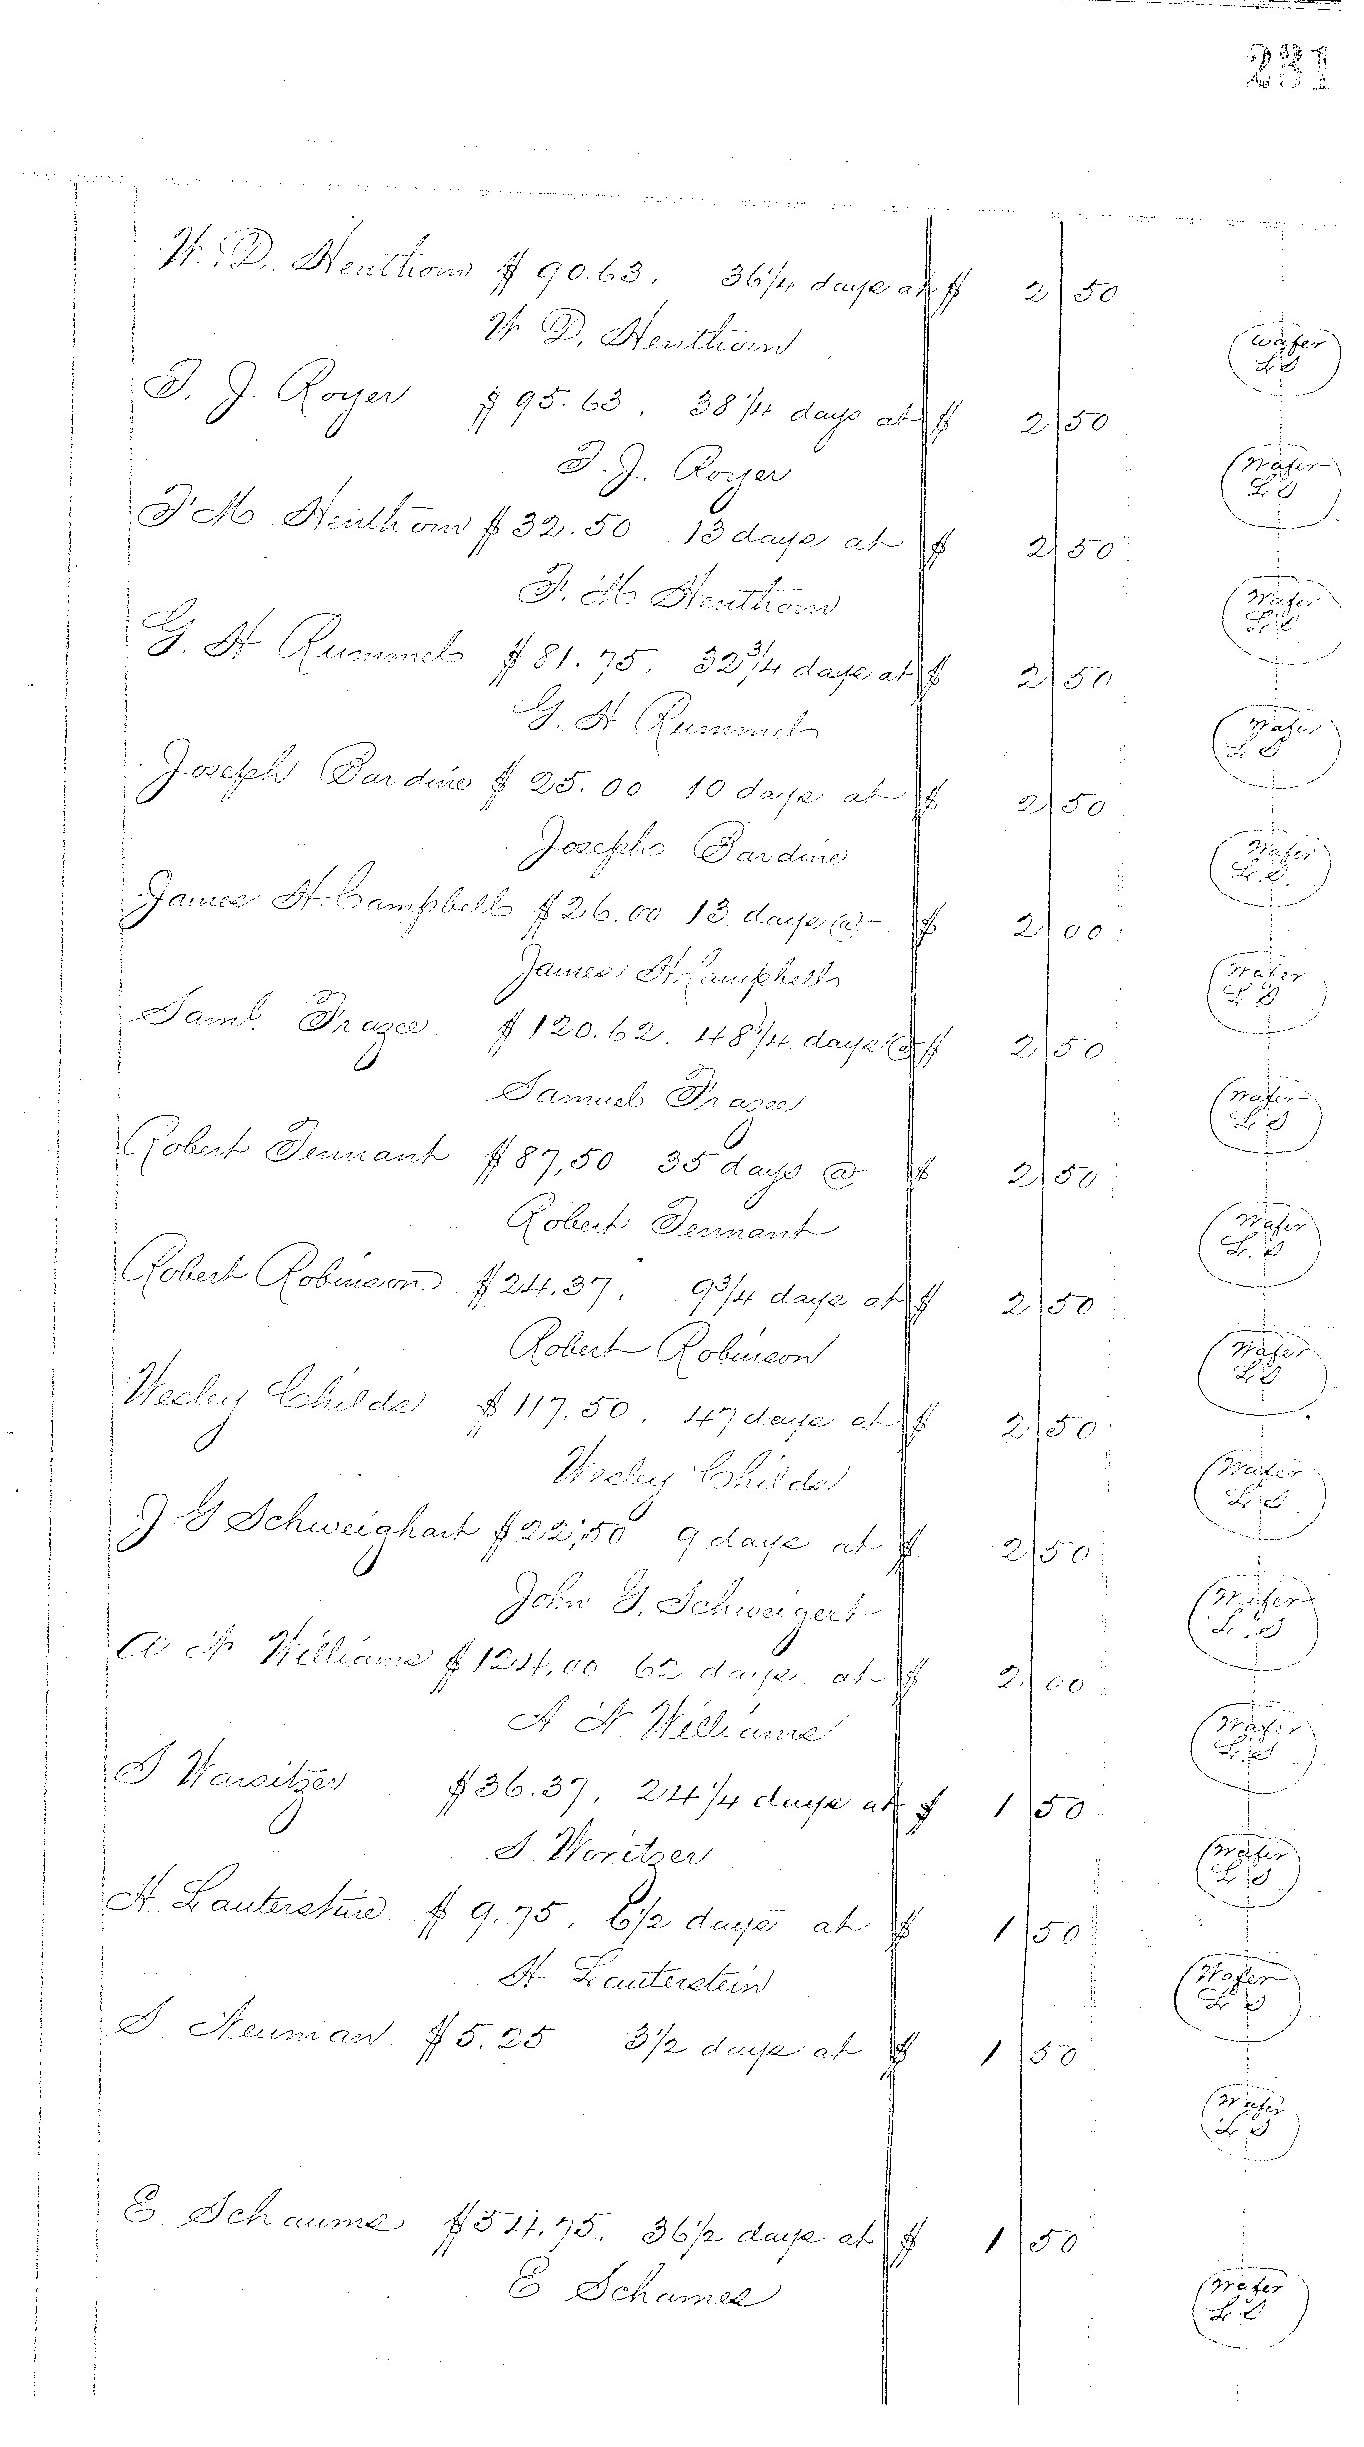 231
W. D. Henthorn $ 90.63. 36 1/4 days at $ 2 50
W D. Henthorn
Wafer
L S
T. J. Royer $ 95.63. 38 1/4 days at $ 2 50
T. J. Royer
Wafer
L S
F M Henthorn $ 32.50 13 days at $ 2 50
F. M Henthorn
Wafer
L S
G. H Rummel $ 81.75. 32 3/4 days at $ 2 50
G. H Rummel
Wafer
L S
Joseph Bardine $ 25.00 10 days at $ 2 50
Joseph Bardine
Wafer
L.S.
James H. Campbell $ 26.00 13 days @ $ 2 00
James H Campbell
Wafer
L S
Saml. Frazee $ 120.62. 48 1/4 days @ $ 2 50
Samuel Frazee
Wafer
L S
Robert Tennant $ 87,50 35 days @ $ 2 50
Robert Tennant
Wafer
L. S
Robert Robinson $ 24.37. 9 3/4 days at $ 2 50
Robert Robinson
Wafer
L S
Wesley Childs $ 117.50. 47 days at $ 2 50
Wesley Childs
Wafer
L S
J G Schweighart $ 22,50 9 days at $ 2 50
John G. Schweigert
Wafer
L. S
A N Williams $ 124.00 62 days at $ 2 00
A N. Williams
Wafer
L S
S Warsitzer $ 36.37. 24 1/4 days at $ 1 50
S. Woritzer
Wafer
L S
H. Lauterstine $ 9.75. 6 1/2 days at $ 1 50
H Lauterstein
Wafer
L S
S. Neuman $ 5.25 3 1/2 days at $ 1 50
Wafer
L S
E. Schaums $ 54.75. 36 1/2 days at $ 1 50
E Schames
Wafer
L S